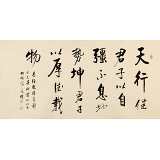 天行健
君子以自
彊不息地
勢坤君子
以厚德載
物